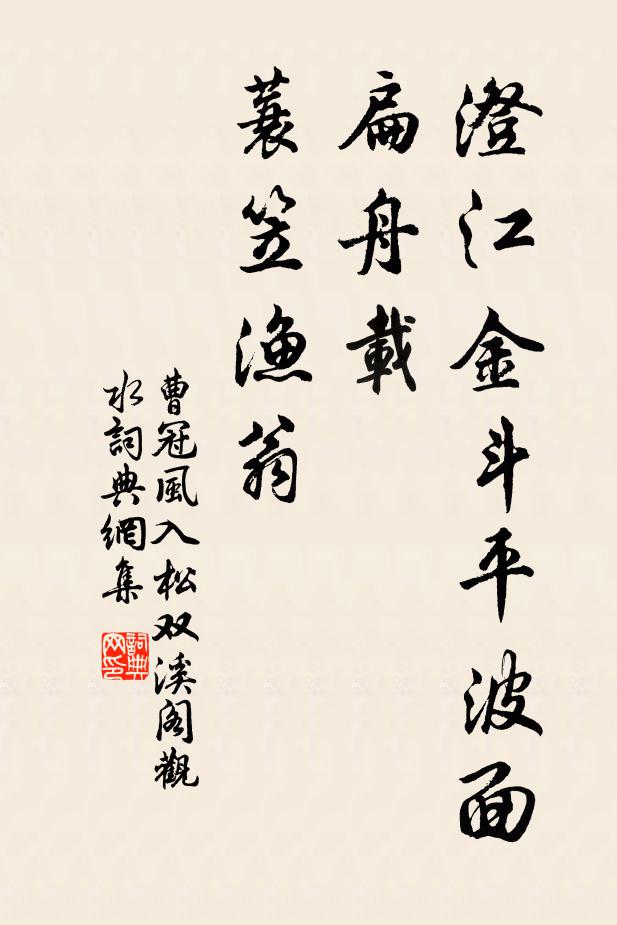 澄江金斗平波面
扁舟載
蓑笠漁翁
曹冠風入松双溪阁觀
水詞典網集
詞典
网印